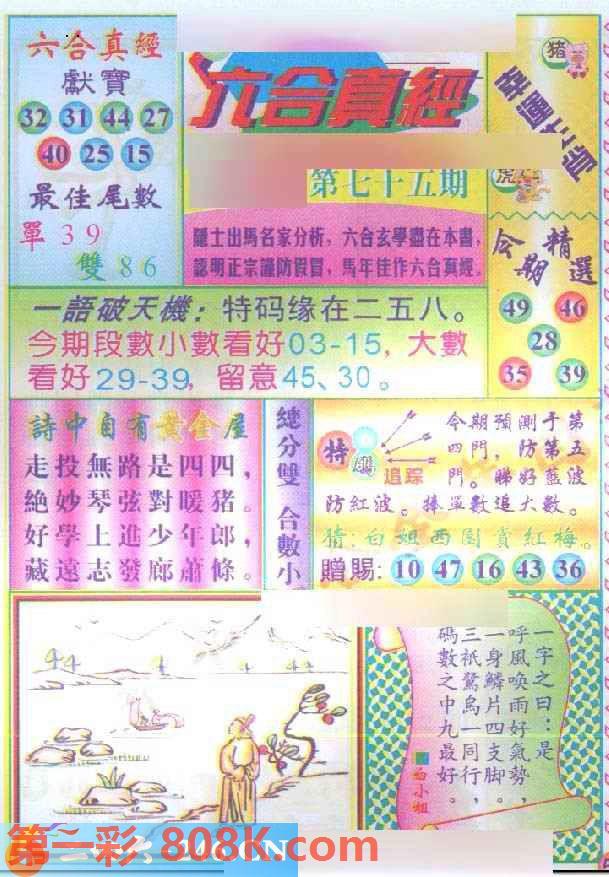 六合真經
獻寶
32 31 44 27
40 25 15
最佳尾數
單39
雙86
六合真經
第七十五期
隱士出馬名家分析，六合玄學盡在本書，
認明正宗謹防假冒，馬年佳作六合真經。
豬
虎
今期精選
49 46
28
35 39
一語破天機：特码缘在二五八。
今期段數小數看好03-15，大數
看好29-39，留意45、30。
詩中自有黃金屋
走投無路是四四，
絕妙琴弦對暖豬。
好學上進少年郎，
藏遠志發廊蕭條。
總分雙 合數小
特碼
追踪
今期預測于第
四門，防第五
門。睇好藍波
防紅波。捧單數追大數。
猜：白姐西園賞紅梅。
贈賜：10 47 16 43 36
一字之曰：是
呼風喚雨好氣勢，
一身鱗片四支腳。
三祇鴛鳥一同行，
碼數之中九最好。
第一彩 808K.com
246.CN